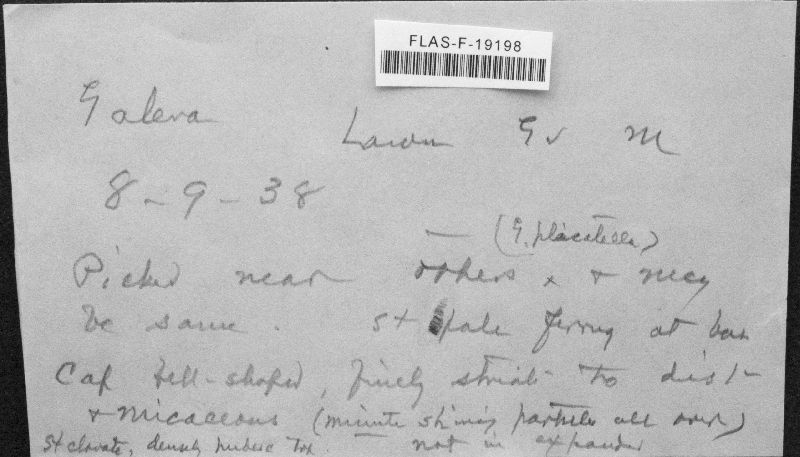 FLAS-F-19198
Galera Lawn Gv M
8-9-38
— (G. plicatella)
Picked near others & may
be same. St pale ferrug at base
Cap bell-shaped, finely striate to disk
& micaceous (minute shining particles all over)
St clavate, densely not in expanded